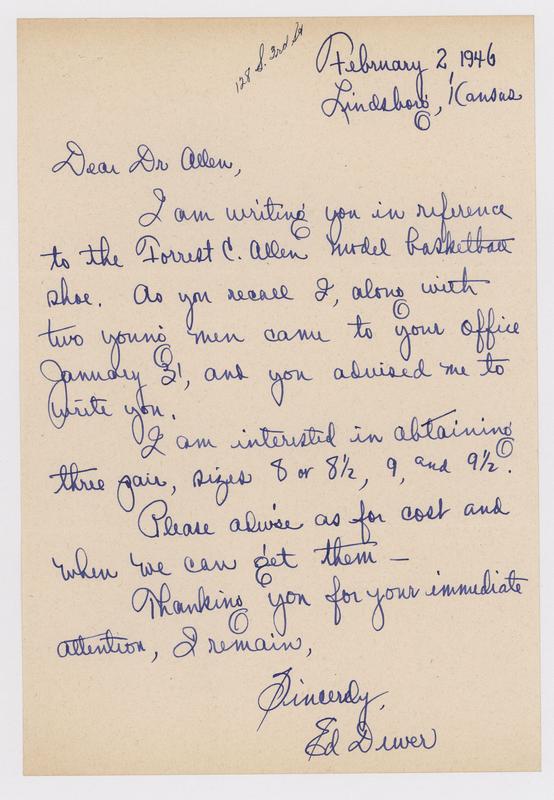 128 S. 3rd St
February 2, 1946
Lindsborg, Kansas
Dear Dr Allen,
I am writing you in reference
to the Forrest C. Allen model basketball
shoe. As you recall I, along with
two young men came to your office
January 31, and you advised me to
write you.
I am interested in obtaining
three pair, sizes 8 or 8½, 9, and 9½.
Please advise as for cost and
when we can get them –
Thanking you for your immediate
attention, I remain,
Sincerely,
Ed